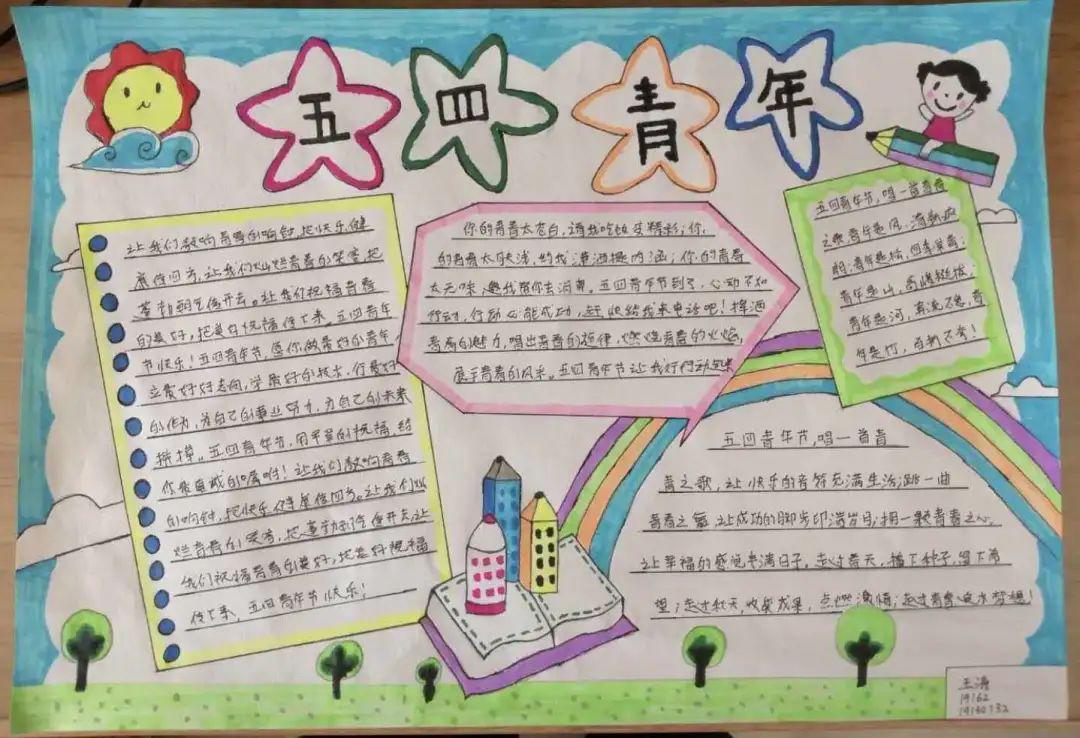 五四青年
让我们敲响青春的响钟,把快乐健
康传四方,让我们灿烂青春的笑容,把
蓬勃朝气传开去。让我们祝福青春
的美好,把美好祝福传下来。五四青年
节快乐!五四青年节,愿你做最好的青年,
立最好好志向,学最好的技术,行最好
的作为,为自己的事业努力,为自己的未来
拼搏。五四青年节,用平至的祝福,给
你最真诚的嘱咐!让我们敲响青春
的响钟,把快乐健康传四方。让我们灿
烂青春的笑容,把蓬勃朝气传开去。让
我们祝福青春的美好,把美好祝福
传下来,五四青年节快乐!
你的青春太苍白,请我吃饭变精彩;你
的青春太肤浅,约我潇洒提内涵;你的青春
太无味,邀我帮你去消费。五四青年节到了,心动不如
行动,行动必能成功,赶快给我来电话吧!挥洒
青春的魅力,唱出青春的旋律,燃烧青春的火焰,
展于青春的风采。五四青年节让我好行动起来
五四青年节,唱一首青春
之歌青年是风,清新疯
明;青年是松,四季常青;
青年是山,奇峰挺拔;
青年是河,奔流不息;青
年是竹,百折不夸!
五四青年节,唱一首青
春之歌,让快乐的音符充满生活;跳一曲
青春之舞,让成功的脚步印满岁月;拥一颗青春之心,
让幸福的感觉装满日子,走过春天,播下种子,留下希
望;走过秋天,收获成果,点燃激情;走过青春,追求梦想!
王涛
19162
19160732